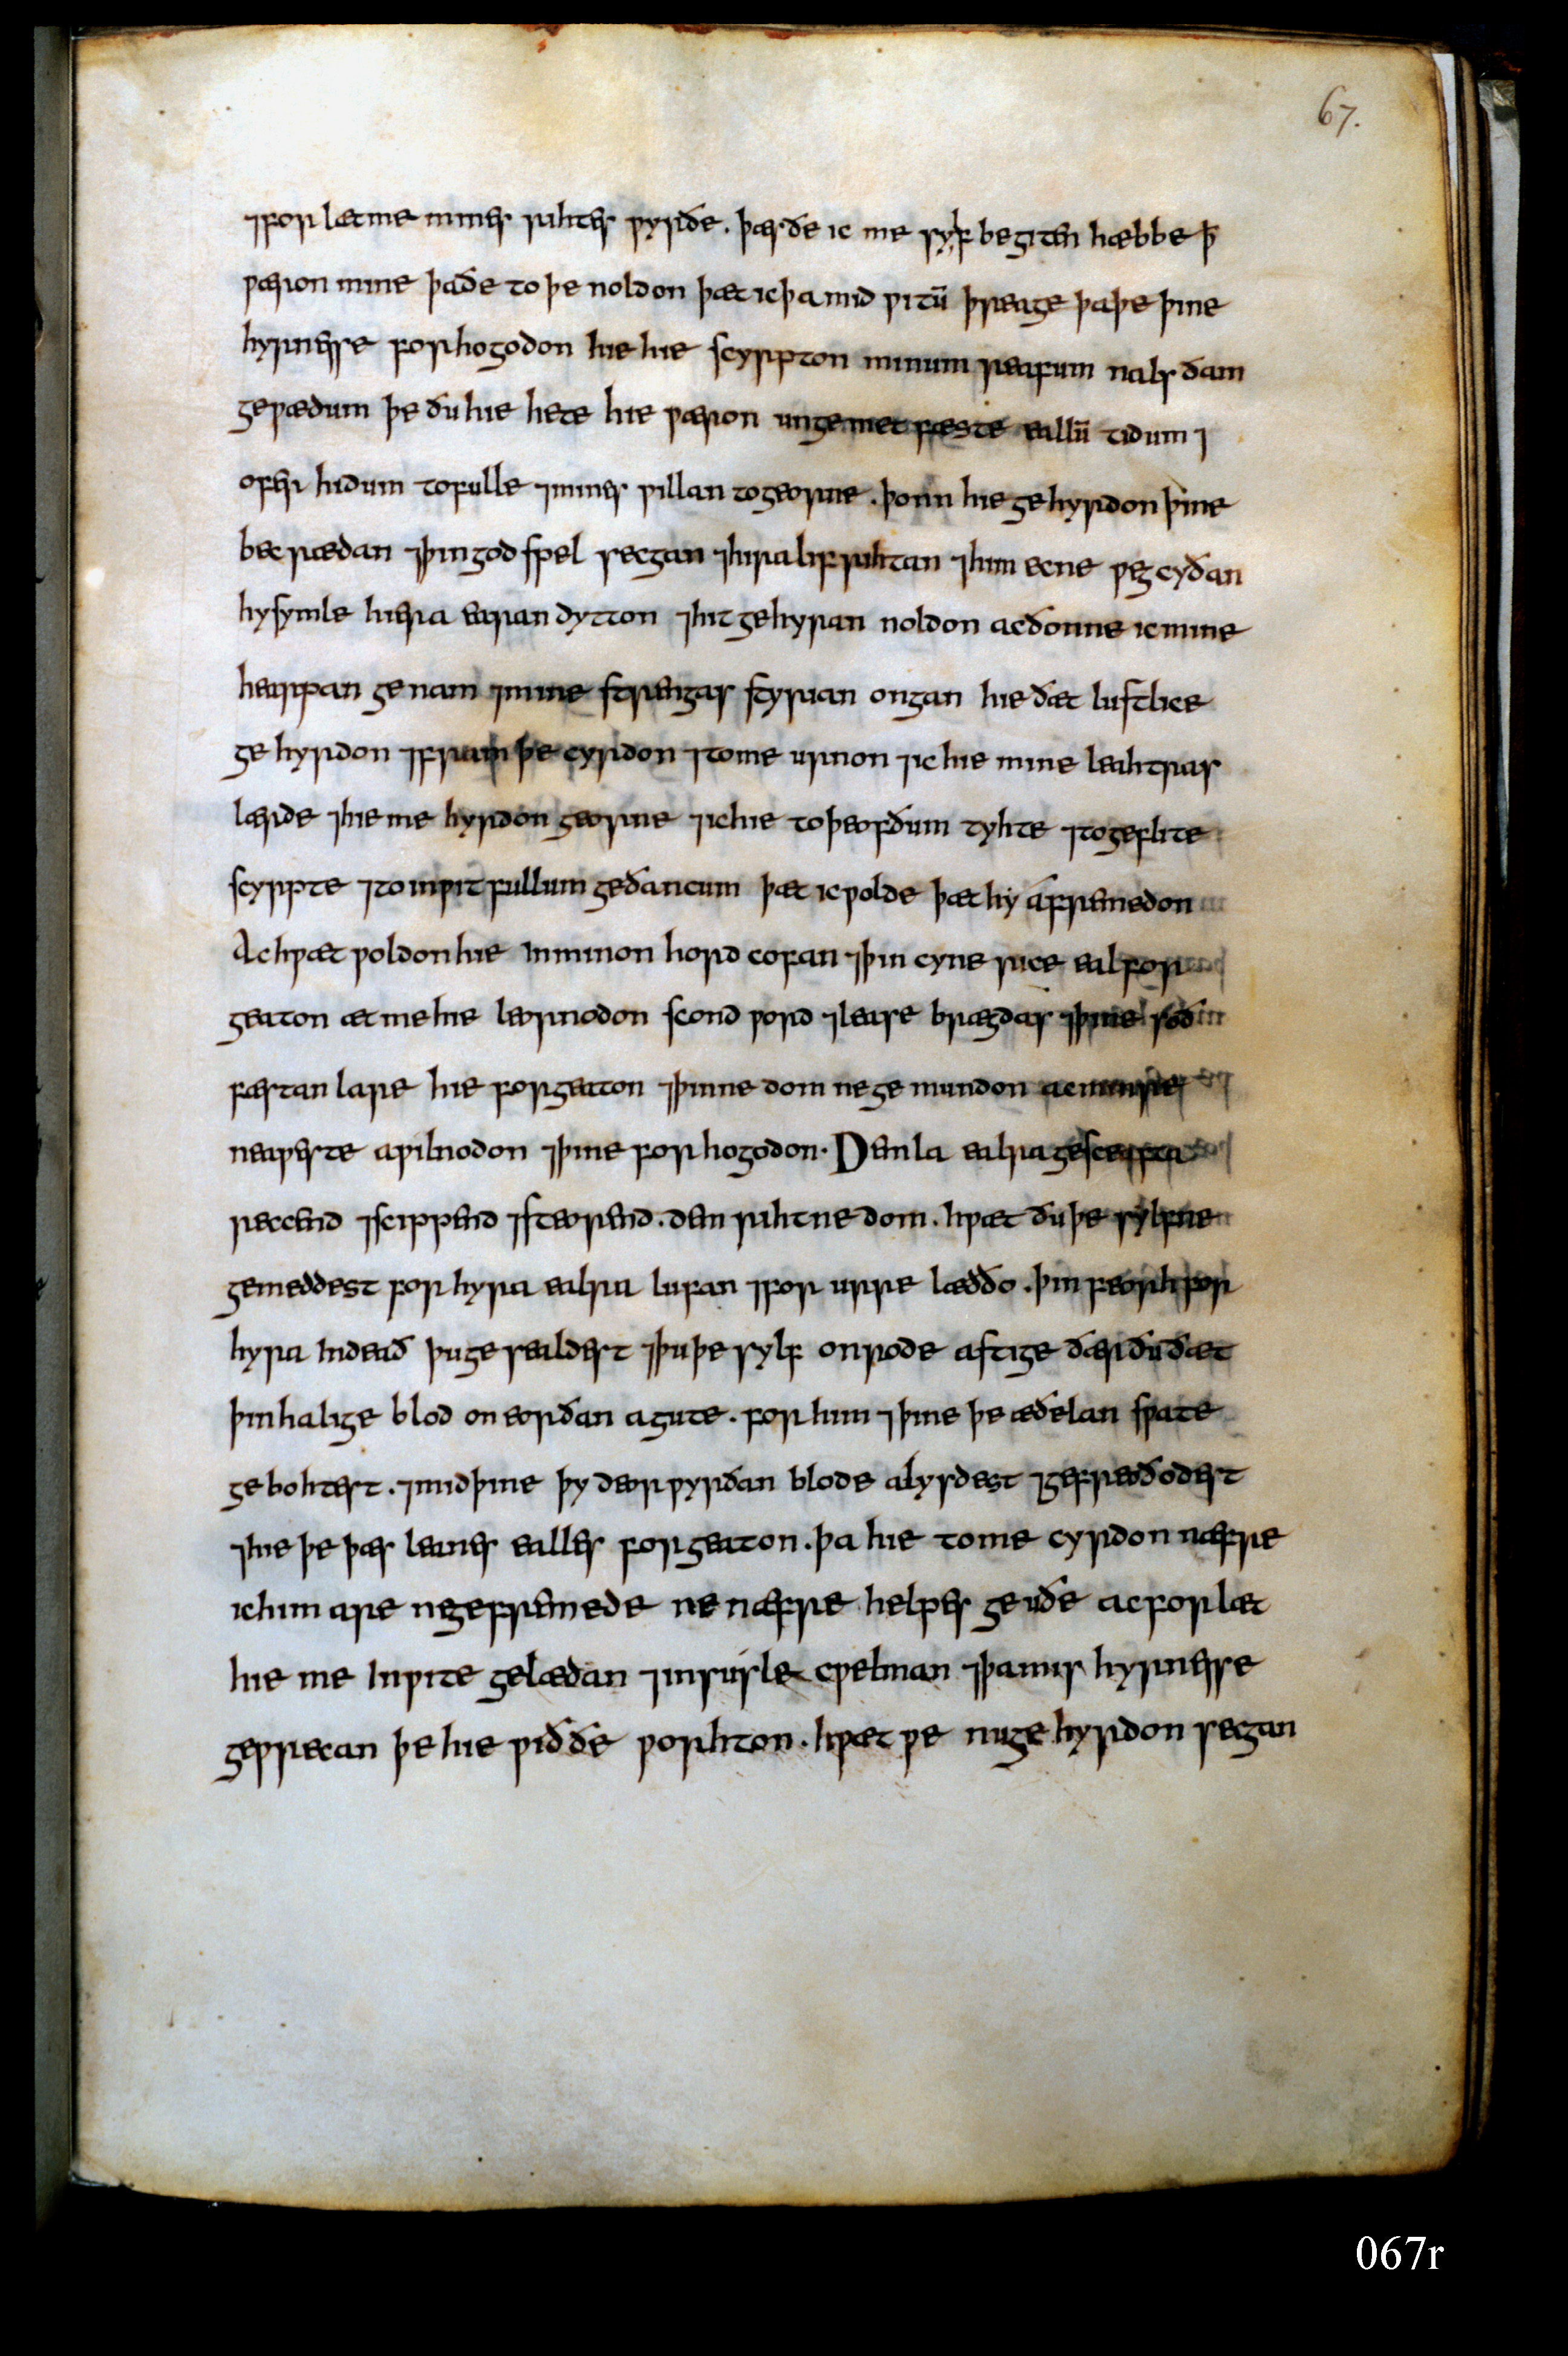 67.
⁊ forlæt me mines rihtes wyrðe. þæs ðe ic me sylf begiten hæbbe þ̄
wæron mine þa ðe to þe noldon þæt ic þa mid witū þreage þa þe þine
hyrnesse forhogodon hie hie scyrpton minum reafum nals ðam
gewædum þe ðu hie hete hie wæron ungemetfæste eallū tidum ⁊
ofer hidum to fulle ⁊ mines willan to georne. þonn hie gehyrdon þine
bec rædan ⁊ þin godspel secgan ⁊ hira lif rihtan ⁊ him ecne weg cyðan
hy symle hiera earan dytton ⁊ hit gehyran noldon ac ðonne ic mine
hearpan genam ⁊ mine strengas styrian ongan hie ðæt lustlice
gehyrdon ⁊ fram þe cyrdon ⁊ to me urnon ⁊ ic hie mine leahtras
lærde ⁊ hie me hyrdon georne ⁊ ic hie to þeofðum tyhte ⁊ to geflite
scyrpte ⁊ to inwitfullum geðancum þæt ic wolde þæt hy áfremedon
Ac hwæt woldon hie in minon hordcofan ⁊ þin cynerice eal for
geaton æt me hie leornodon scondword ⁊ lease brægdas ⁊ þine soð
fæstan lare hie forgeaton ⁊ þinne dom ne gemundon ac minre
neaweste a wilnodon ⁊ þine forhogodon. Dem la ealra gesceafta
reccend ⁊ scippend ⁊ steorend. dem rihtne dom. hwæt ðu þe sylfne
gemeddest for hyra ealra lufan ⁊ for usse læððo. þin feorh for
hyra in deað þu gesealdest ⁊ þu þe sylf on rode astige ðær ðu ðæt
þin halige blod on eorðan agute. for him ⁊ þine þe æðelan swate
gebohtest. ⁊ mid þine þy deorwyrðan blode alysdest ⁊ gefreoðodest
⁊ hie þe þæs leanes ealles forgeaton. þa hie to me cyrdon næfre
ic him are ne gefremede ne næfre helpes geuðe ac forlæt
hie me in wite gelædan ⁊ in susle cwelman ⁊ þa mis hyrnesse
gewrecan þe hie wið ðe worhton. hwæt we nu gehyrdon secgan
067r